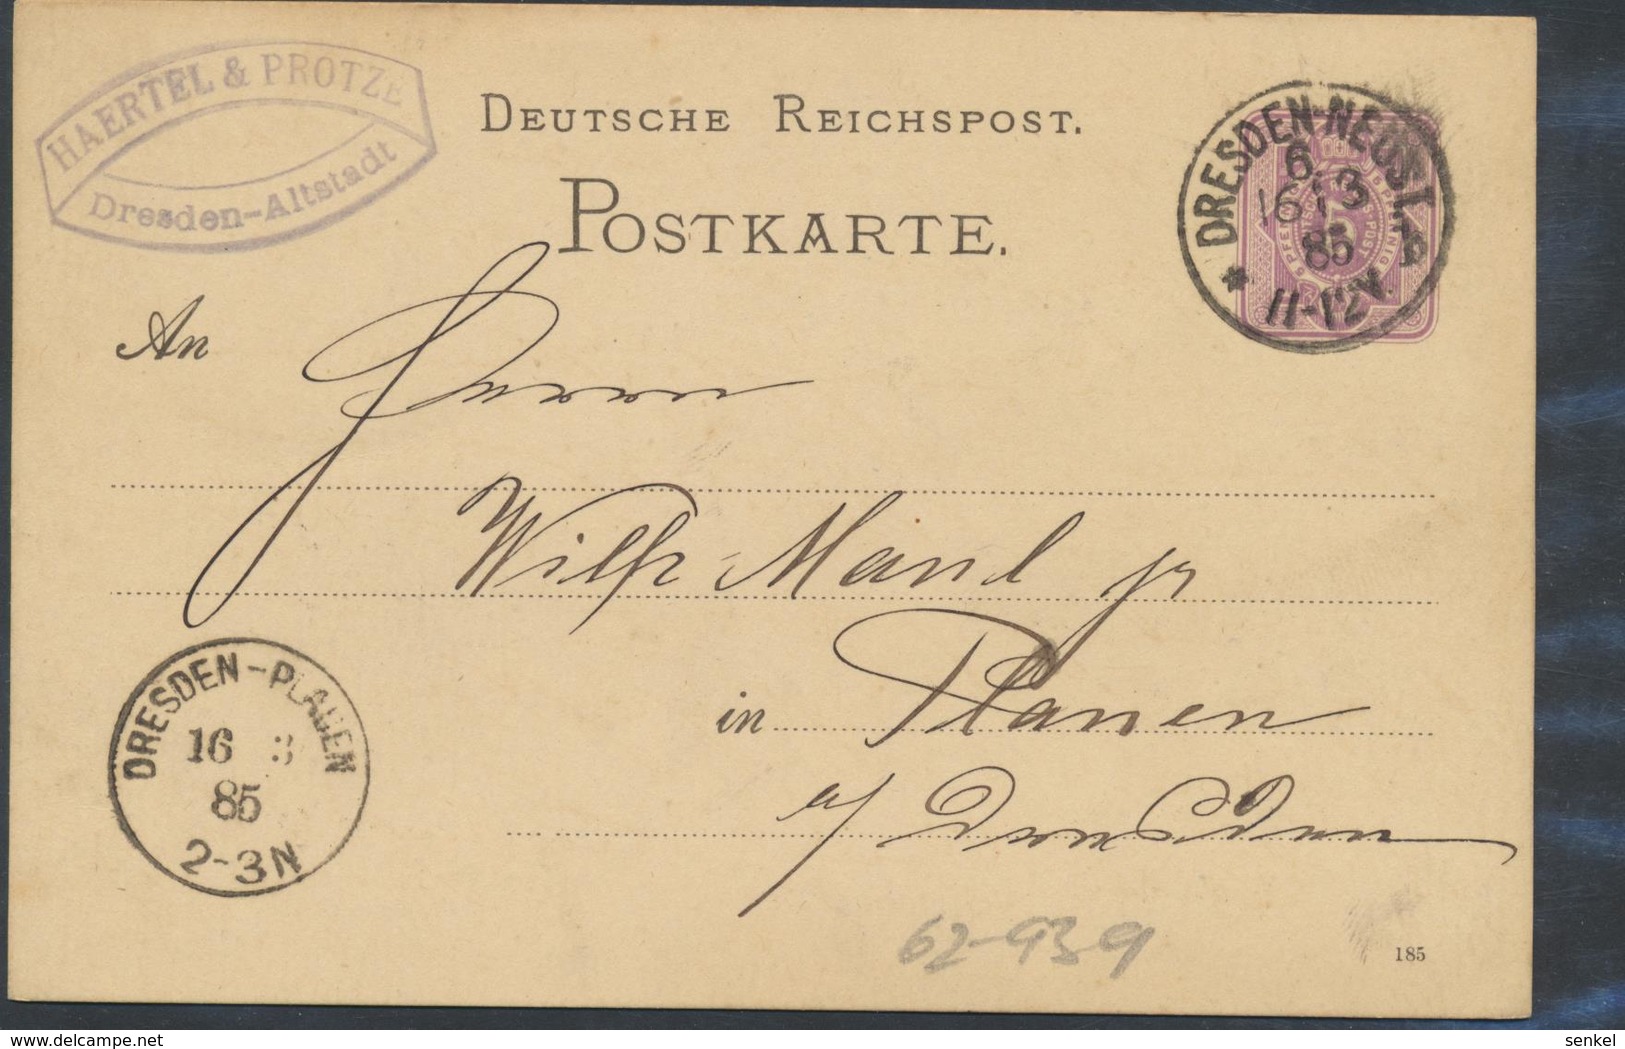 HAERTEL & PROTZE
Dresden-Altstadt
DEUTSCHE REICHSPOST.
POSTKARTE.
DRESDEN-NEUST.
6.
16 3
85
11-12V.
An Herrn
Wilh. Mand jr
in Plauen
a/ Dresden
DRESDEN-PLAUEN
16 3
85
2-3N
62-939
185
senkel